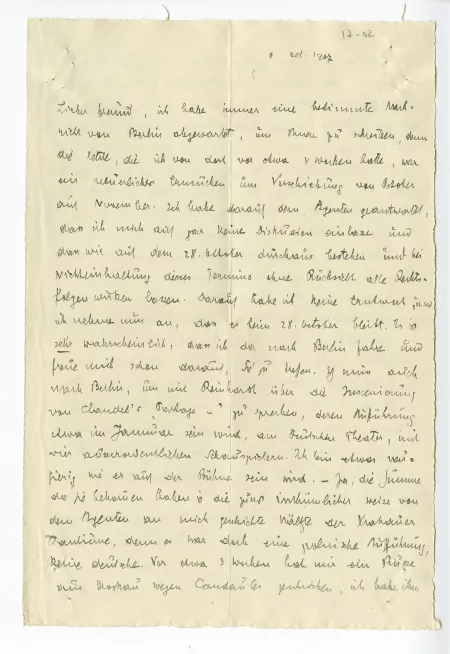 17-52
9. Okt. 1907
Lieber Freund, ich habe immer eine bestimmte Nach-
richt von Berlin abgewartet, um Ihnen zu schreiben, denn
die letzte, die ich von dort vor etwa 4 Wochen hatte, war
ein neuerliches Ersuchen um Verschiebung von October
auf November. Ich habe darauf dem Agenten geantwortet,
dass ich mich auf gar keine Diskussion einlasse und
dass wir auf dem 28. Oktober durchaus bestehen und bei
Nichteinhaltung dieses Termins ohne Rücksicht alle Rechts-
folgen wirken lassen. Darauf habe ich keine Antwort, und
ich nehme nun an, dass es beim 28. October bleibt. Es is
sehr wahrscheinlich, dass ich da nach Berlin fahre und
freue mich schon darauf, Sie zu treffen. Ich muss auch
nach Berlin, um mit Reinhardt über die Inscenierung
von Claudel's "Partage –" zu sprechen, deren Aufführung
etwa im Januar sein wird, am Deutschen Theater, mit
vier ausserordentlichen Schauspielern. Ich bin etwas neu-
gierig wie es auf der Bühne sein wird. – Ja, die Summe
die Sie bekommen haben is die ganz irrthümlicher Weise von
dem Agenten an mich geschickte Hälfte der Krakauer
Tantième, denn es war doch eine polnische Aufführung,
keine deutsche. Vor etwa 3 Wochen hat mir ein Russe
aus Moskau wegen Candaules geschrieben, ich habe ihm